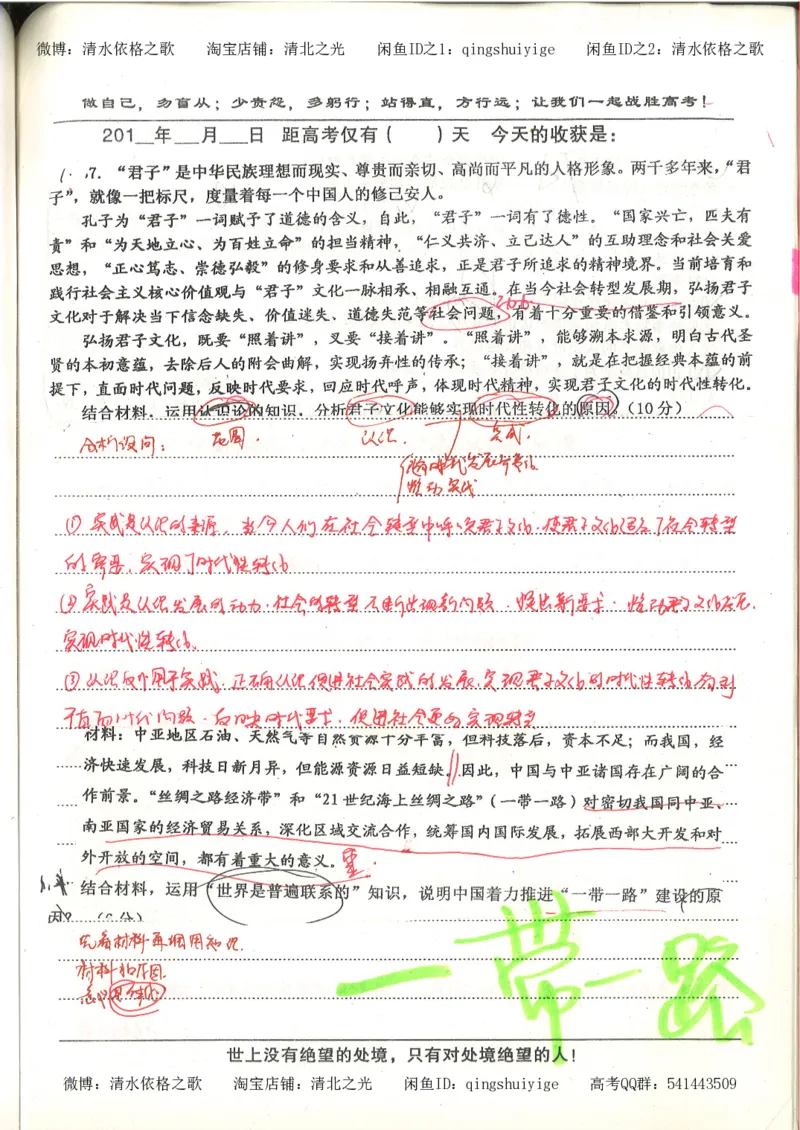 微博：清水依格之歌 淘宝店铺：清北之光 闲鱼ID之1：qingshuiyige 闲鱼ID之2：清水依格之歌
做自己，勿盲从；少责怨，多躬行；站得直，方行远；让我们一起战胜高考！
201__年___月___日 距高考仅有（ ）天 今天的收获是：
7.“君子”是中华民族理想而现实、尊贵而亲切、高尚而平凡的人格形象。两千多年来，“君
子”，就像一把标尺，度量着每一个中国人的修己安人。
孔子为“君子”一词赋予了道德的含义，自此，“君子”一词有了德性。“国家兴亡，匹夫有
责”和“为天地立心、为百姓立命”的担当精神，“仁义共济、立己达人”的互助理念和社会关爱
思想，“正心笃志、崇德弘毅”的修身要求和从善追求，正是君子所追求的精神境界。当前培育和
践行社会主义核心价值观与“君子”文化一脉相承、相融互通。在当今社会转型发展期，弘扬君子
文化对于解决当下信念缺失、价值迷失、道德失范等社会问题，有着十分重要的借鉴和引领意义。
弘扬君子文化，既要“照着讲”，又要“接着讲”。“照着讲”，能够溯本求源，明白古代圣
贤的本初意蕴，去除后人的附会曲解，实现扬弃性的传承；“接着讲”，就是在把握经典本蕴的前
提下，直面时代问题，反映时代要求，回应时代呼声，体现时代精神，实现君子文化的时代性转化。
结合材料，运用认识论的知识，分析君子文化能够实现时代性转化的原因。（10分）
分析设问： 范围. 认识. 实践.
推动实践
①实践是认识的来源，当今人们在社会转型中呼唤君子文化，使君子文化适应了社会转型
的需要，实现了时代性转化
②实践是认识发展的动力，社会的转型不断出现新问题，提出新要求，推动君子文化发展，
实现时代性转化.
③认识反作用于实践，正确认识促进社会实践的发展，实现君子文化的时代性转化有利
于直面时代问题，反映时代要求，促进社会更好实现转型
材料：中亚地区石油、天然气等自然资源十分丰富，但科技落后，资本不足；而我国，经
济快速发展，科技日新月异，但能源资源日益短缺。因此，中国与中亚诸国存在广阔的合
作前景。“丝绸之路经济带”和“21世纪海上丝绸之路”（一带一路）对密切我国同中亚、
南亚国家的经济贸易关系，深化区域交流合作，统筹国内国际发展，拓展西部大开发和对
外开放的空间，都有着重大的意义。
结合材料，运用“世界是普遍联系的”知识，说明中国着力推进“一带一路”建设的原
因？
先看材料再调用知识.
一带一路
世上没有绝望的处境，只有对处境绝望的人！
微博：清水依格之歌 淘宝店铺：清北之光 闲鱼ID：qingshuiyige 高考QQ群：541443509